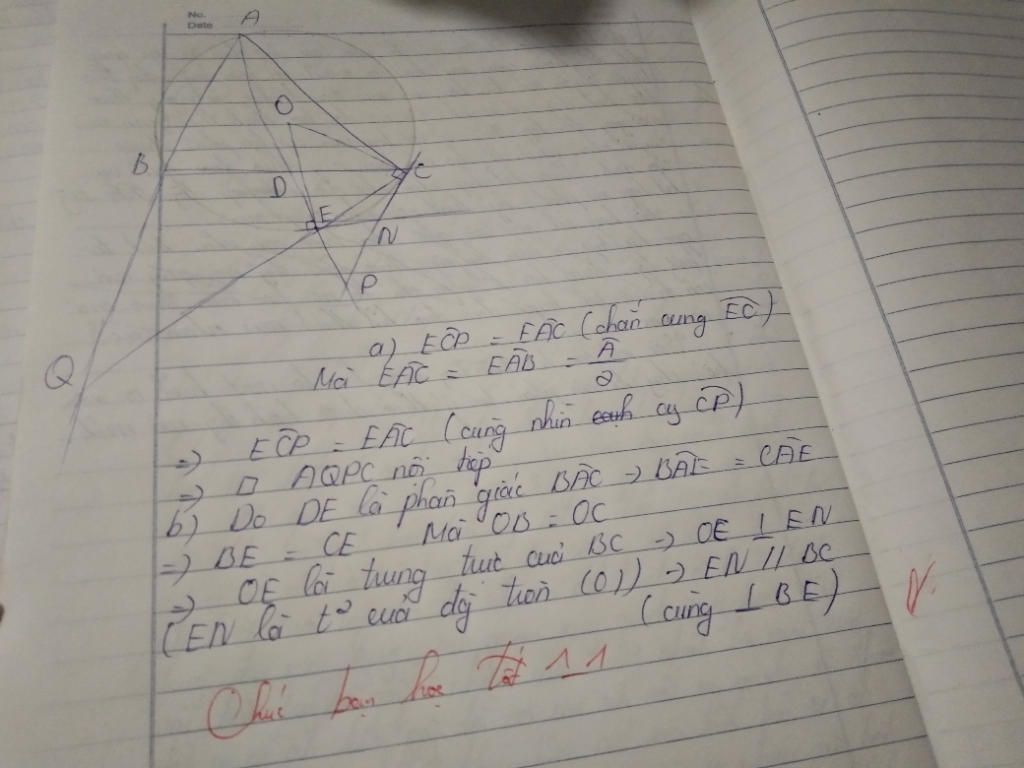 No.
Date
A
O
B
C
D
E
N
P
Q
a) ECP = EAC (chắn cung EC)
Mà EAC = EAB = A/2
=) ECP = EAC (cùng nhìn cạnh cg CP)
=) □ AQPC nội tiếp
b) Do DE là phân giác BAC → BAE = CAE
=) BE = CE Mà OB = OC
=) OE là trung trực của BC → OE ⊥ EN
(EN là t² của đg tròn (O)) → EN // BC
(cùng ⊥ BE)
Chúc bạn học tốt ^ ^